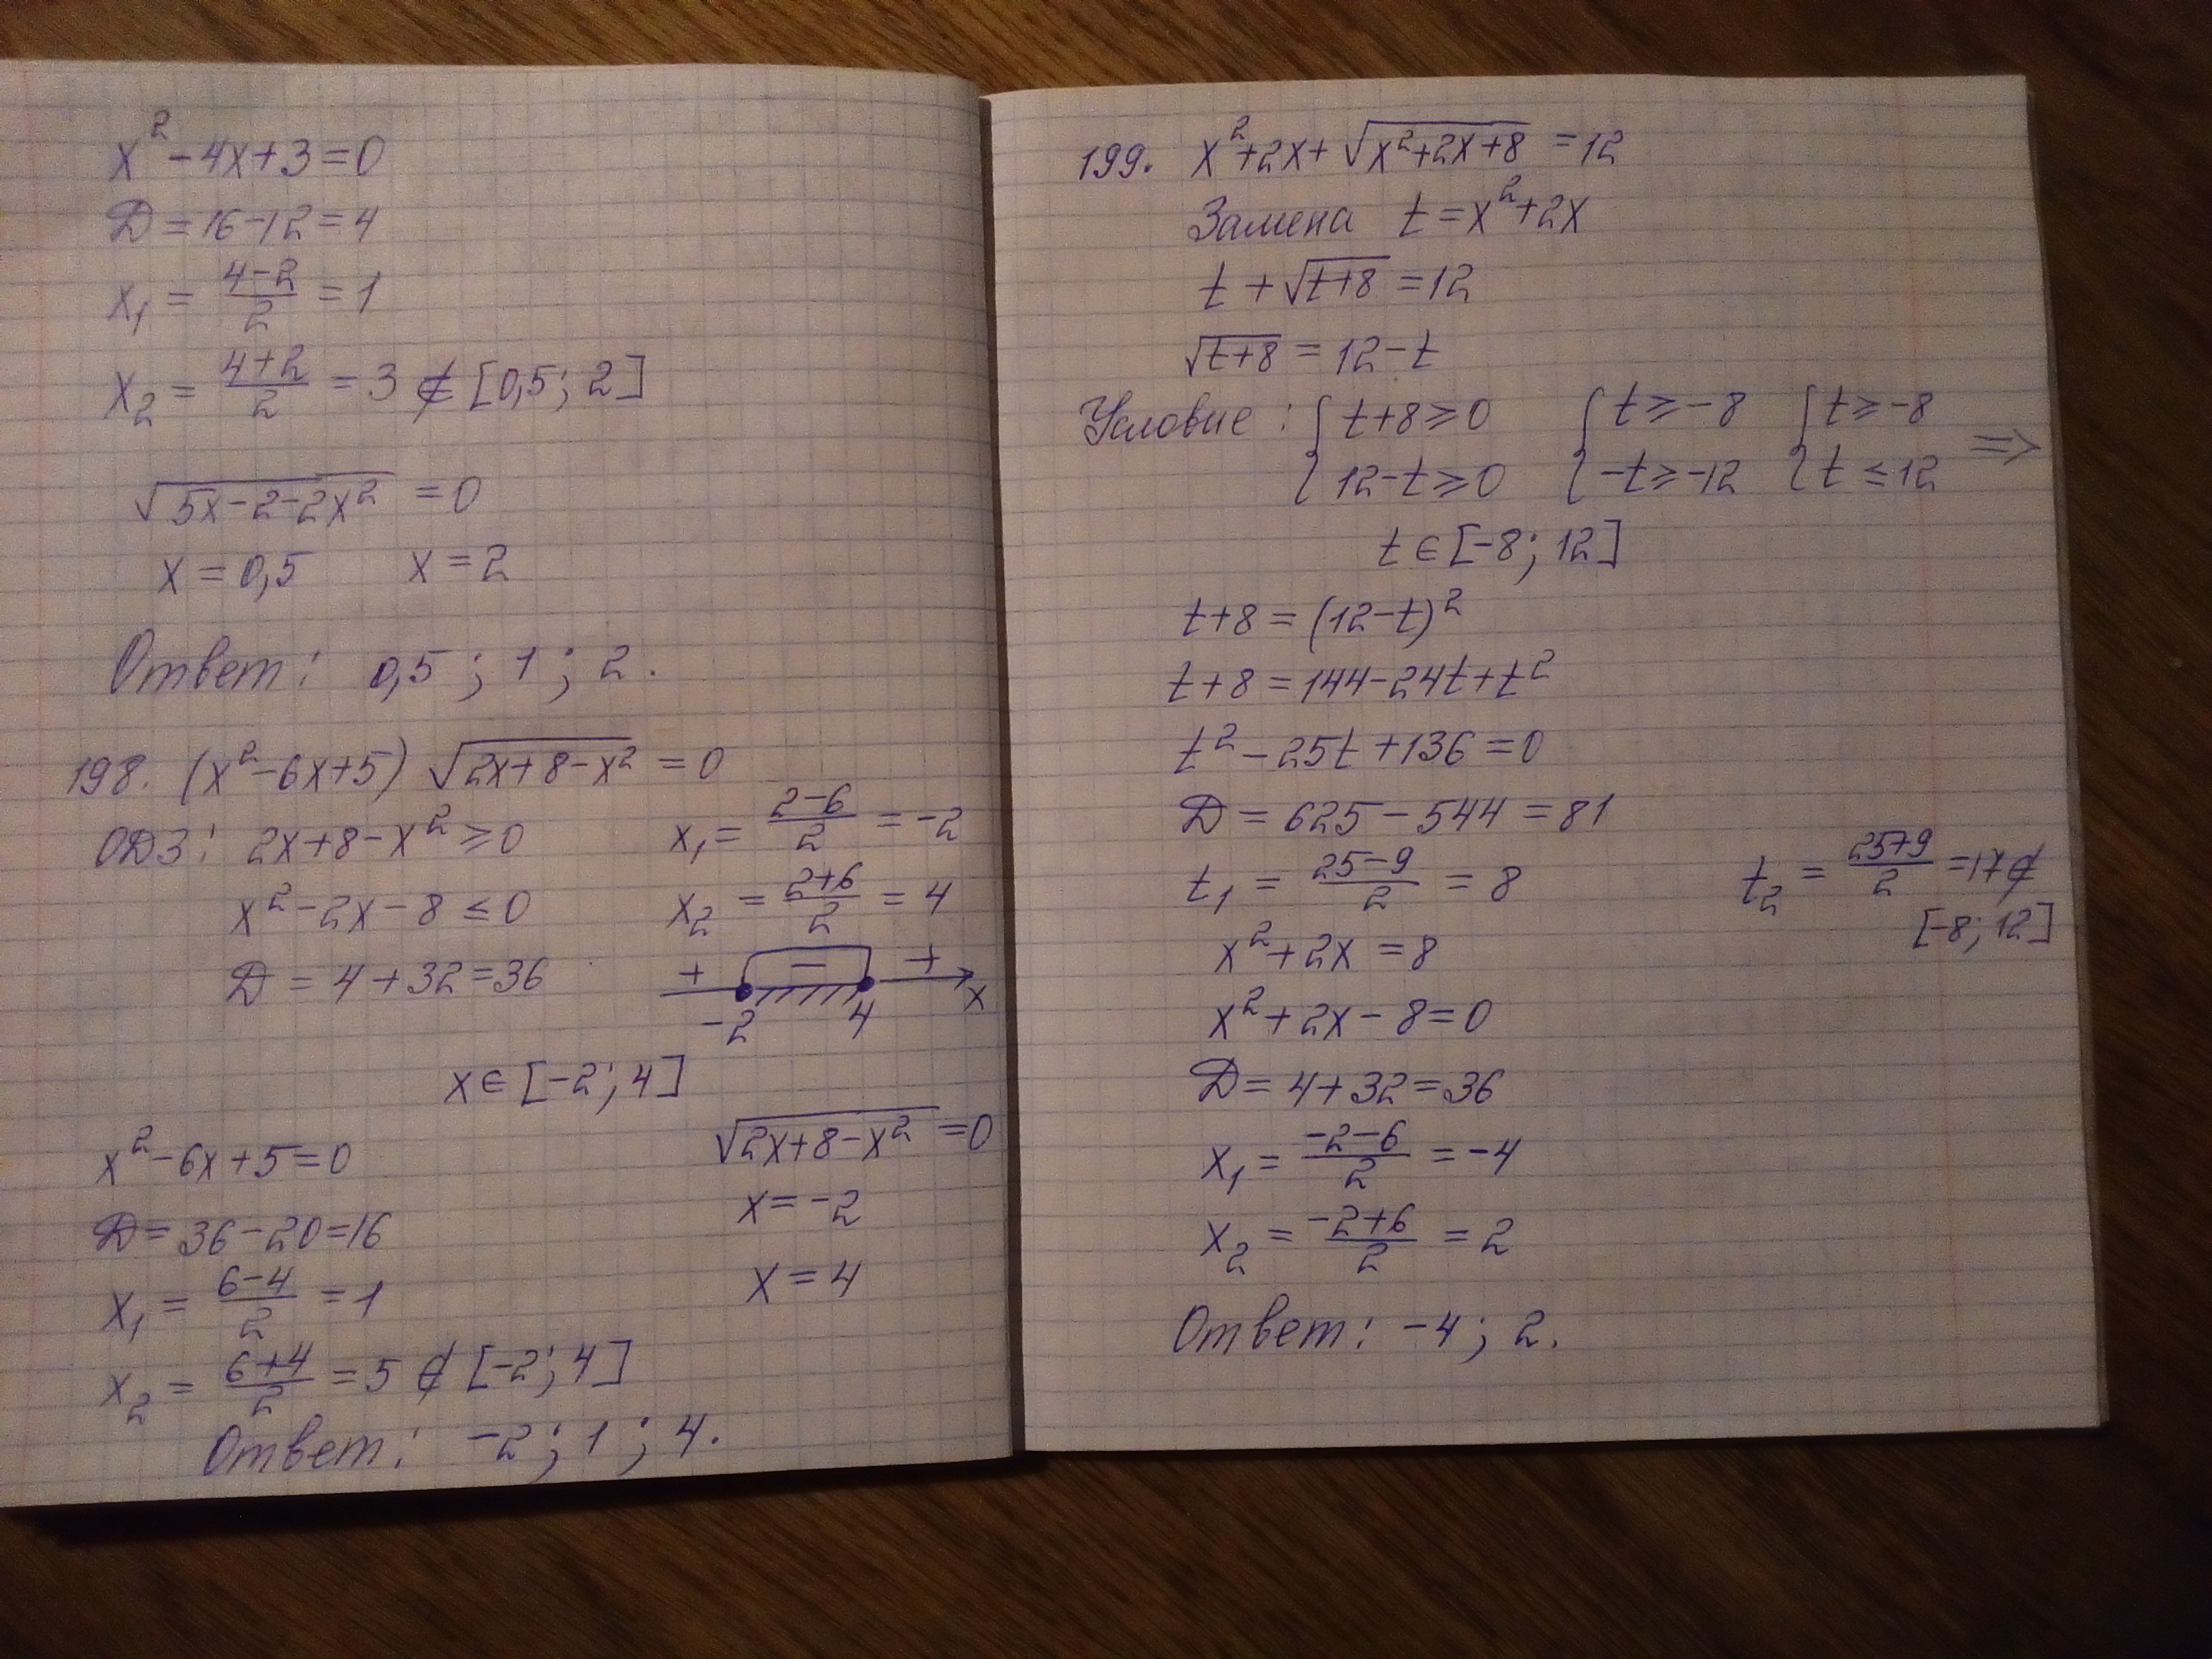 x² - 4x + 3 = 0
D = 16 - 12 = 4
x₁ = (4-2)/2 = 1
x₂ = (4+2)/2 = 3 ∉ [0,5; 2]
√(5x - 2 - 2x²) = 0
x = 0,5 x = 2
Ответ: 0,5; 1; 2.
198. (x² - 6x + 5) √(2x + 8 - x²) = 0
ОДЗ: 2x + 8 - x² ≥ 0
x² - 2x - 8 ≤ 0
D = 4 + 32 = 36
x₁ = (2-6)/2 = -2
x₂ = (2+6)/2 = 4
+ − +
-2 4 x
x ∈ [-2; 4]
x² - 6x + 5 = 0
D = 36 - 20 = 16
x₁ = (6-4)/2 = 1
x₂ = (6+4)/2 = 5 ∉ [-2; 4]
√(2x + 8 - x²) = 0
x = -2
x = 4
Ответ: -2; 1; 4.
199. x² + 2x + √(x² + 2x + 8) = 12
Замена t = x² + 2x
t + √(t+8) = 12
√(t+8) = 12 - t
Условие: { t+8 ≥ 0 { t ≥ -8 { t ≥ -8
{ 12-t ≥ 0 { -t ≥ -12 { t ≤ 12 =>
t ∈ [-8; 12]
t + 8 = (12-t)²
t + 8 = 144 - 24t + t²
t² - 25t + 136 = 0
D = 625 - 544 = 81
t₁ = (25-9)/2 = 8 t₂ = (25+9)/2 = 17 ∉
[-8; 12]
x² + 2x = 8
x² + 2x - 8 = 0
D = 4 + 32 = 36
x₁ = (-2-6)/2 = -4
x₂ = (-2+6)/2 = 2
Ответ: -4; 2.